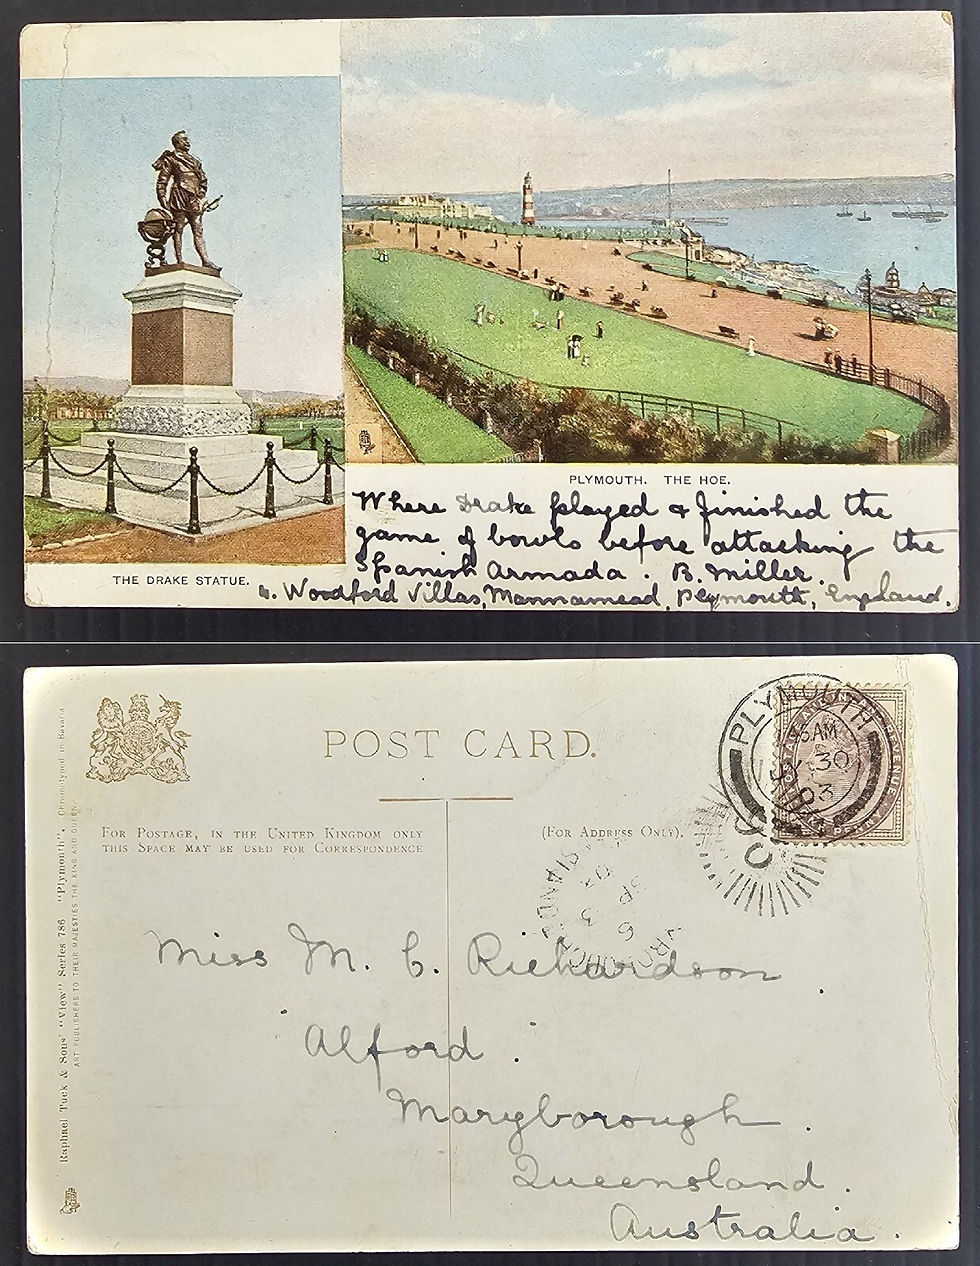 PLYMOUTH. THE HOE.
Where Drake played & finished the
game of bowls before attacking the
Spanish Armada. B. Miller.
THE DRAKE STATUE.
Woodford Villas, Mannamead, Plymouth, England.
POST CARD.
FOR POSTAGE, IN THE UNITED KINGDOM ONLY
THIS SPACE MAY BE USED FOR CORRESPONDENCE
(FOR ADDRESS ONLY).
PLYMOUTH
JY 30
03
SP 6
03
Miss M. C. Richardson
Alford.
Maryborough.
Queensland.
Australia.
Raphael Tuck & Sons' "View" Series 786 "Plymouth". Chromotyped in Bavaria
ART PUBLISHERS TO THEIR MAJESTIES THE KING AND QUEEN.